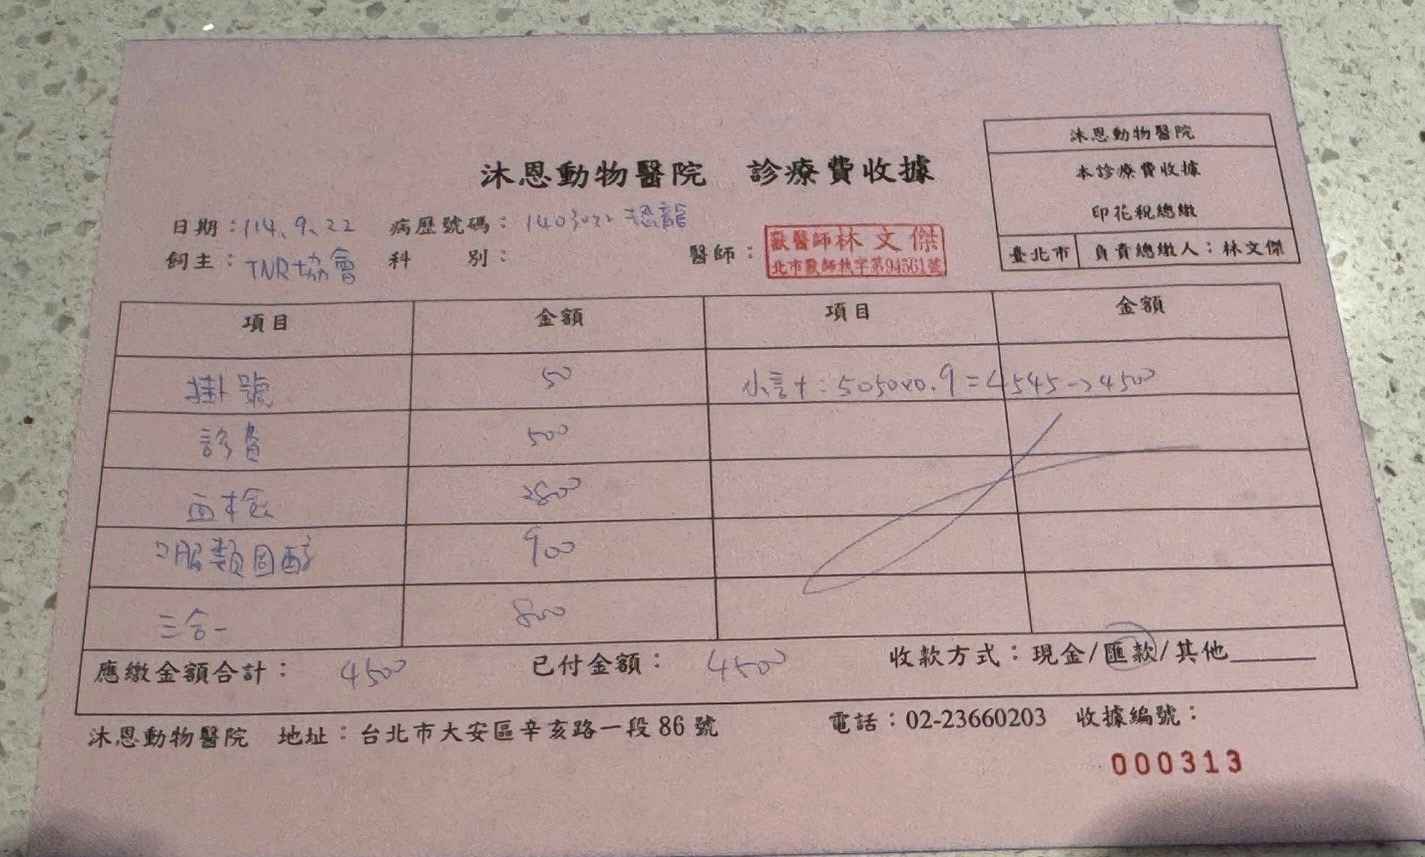 沐恩動物醫院
本診療費收據
印花稅總繳
臺北市 負責總繳人：林文傑
沐恩動物醫院 診療費收據
日期：114.9.22 病歷號碼：1403022 恐龍
飼主：TNR協會 科 別： 醫師：
獸醫師林文傑
北市獸師執字第94561號
項目 金額 項目 金額
掛號 50 小計：5050x0.9=4545→4500
診費 500
血檢 2800
口服類固醇 900
三合一 800
應繳金額合計：4500 已付金額：4500 收款方式：現金/匯款/其他
沐恩動物醫院 地址：台北市大安區辛亥路一段86號 電話：02-23660203 收據編號：
000313